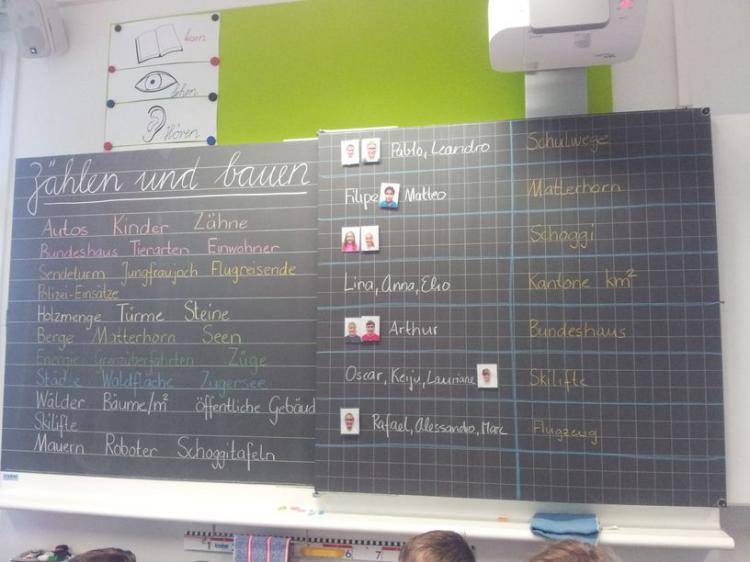 lesen
sehen
hören
Zählen und bauen
Autos Kinder Zähne
Bundeshaus Tierarten Einwohner
Sendeturm Jungfraujoch Flugreisende
Polizei-Einsätze
Holzmenge Türme Steine
Berge Matterhorn Seen
Energie Grenzüberfahrten Züge
Städte Waldfläche Zugersee
Wälder Bäume/m² öffentliche Gebäud
Skilifte
Mauern Roboter Schoggitafeln
Pablo, Leandro Schulwege
Filipe Matteo Matterhorn
Schoggi
Lina, Anna, Elio Kantone km²
Arthur Bundeshaus
Oscar, Keiju, Lauriane Skilifte
Rafael, Alessandro, Marc Flugzeug
1
6
7